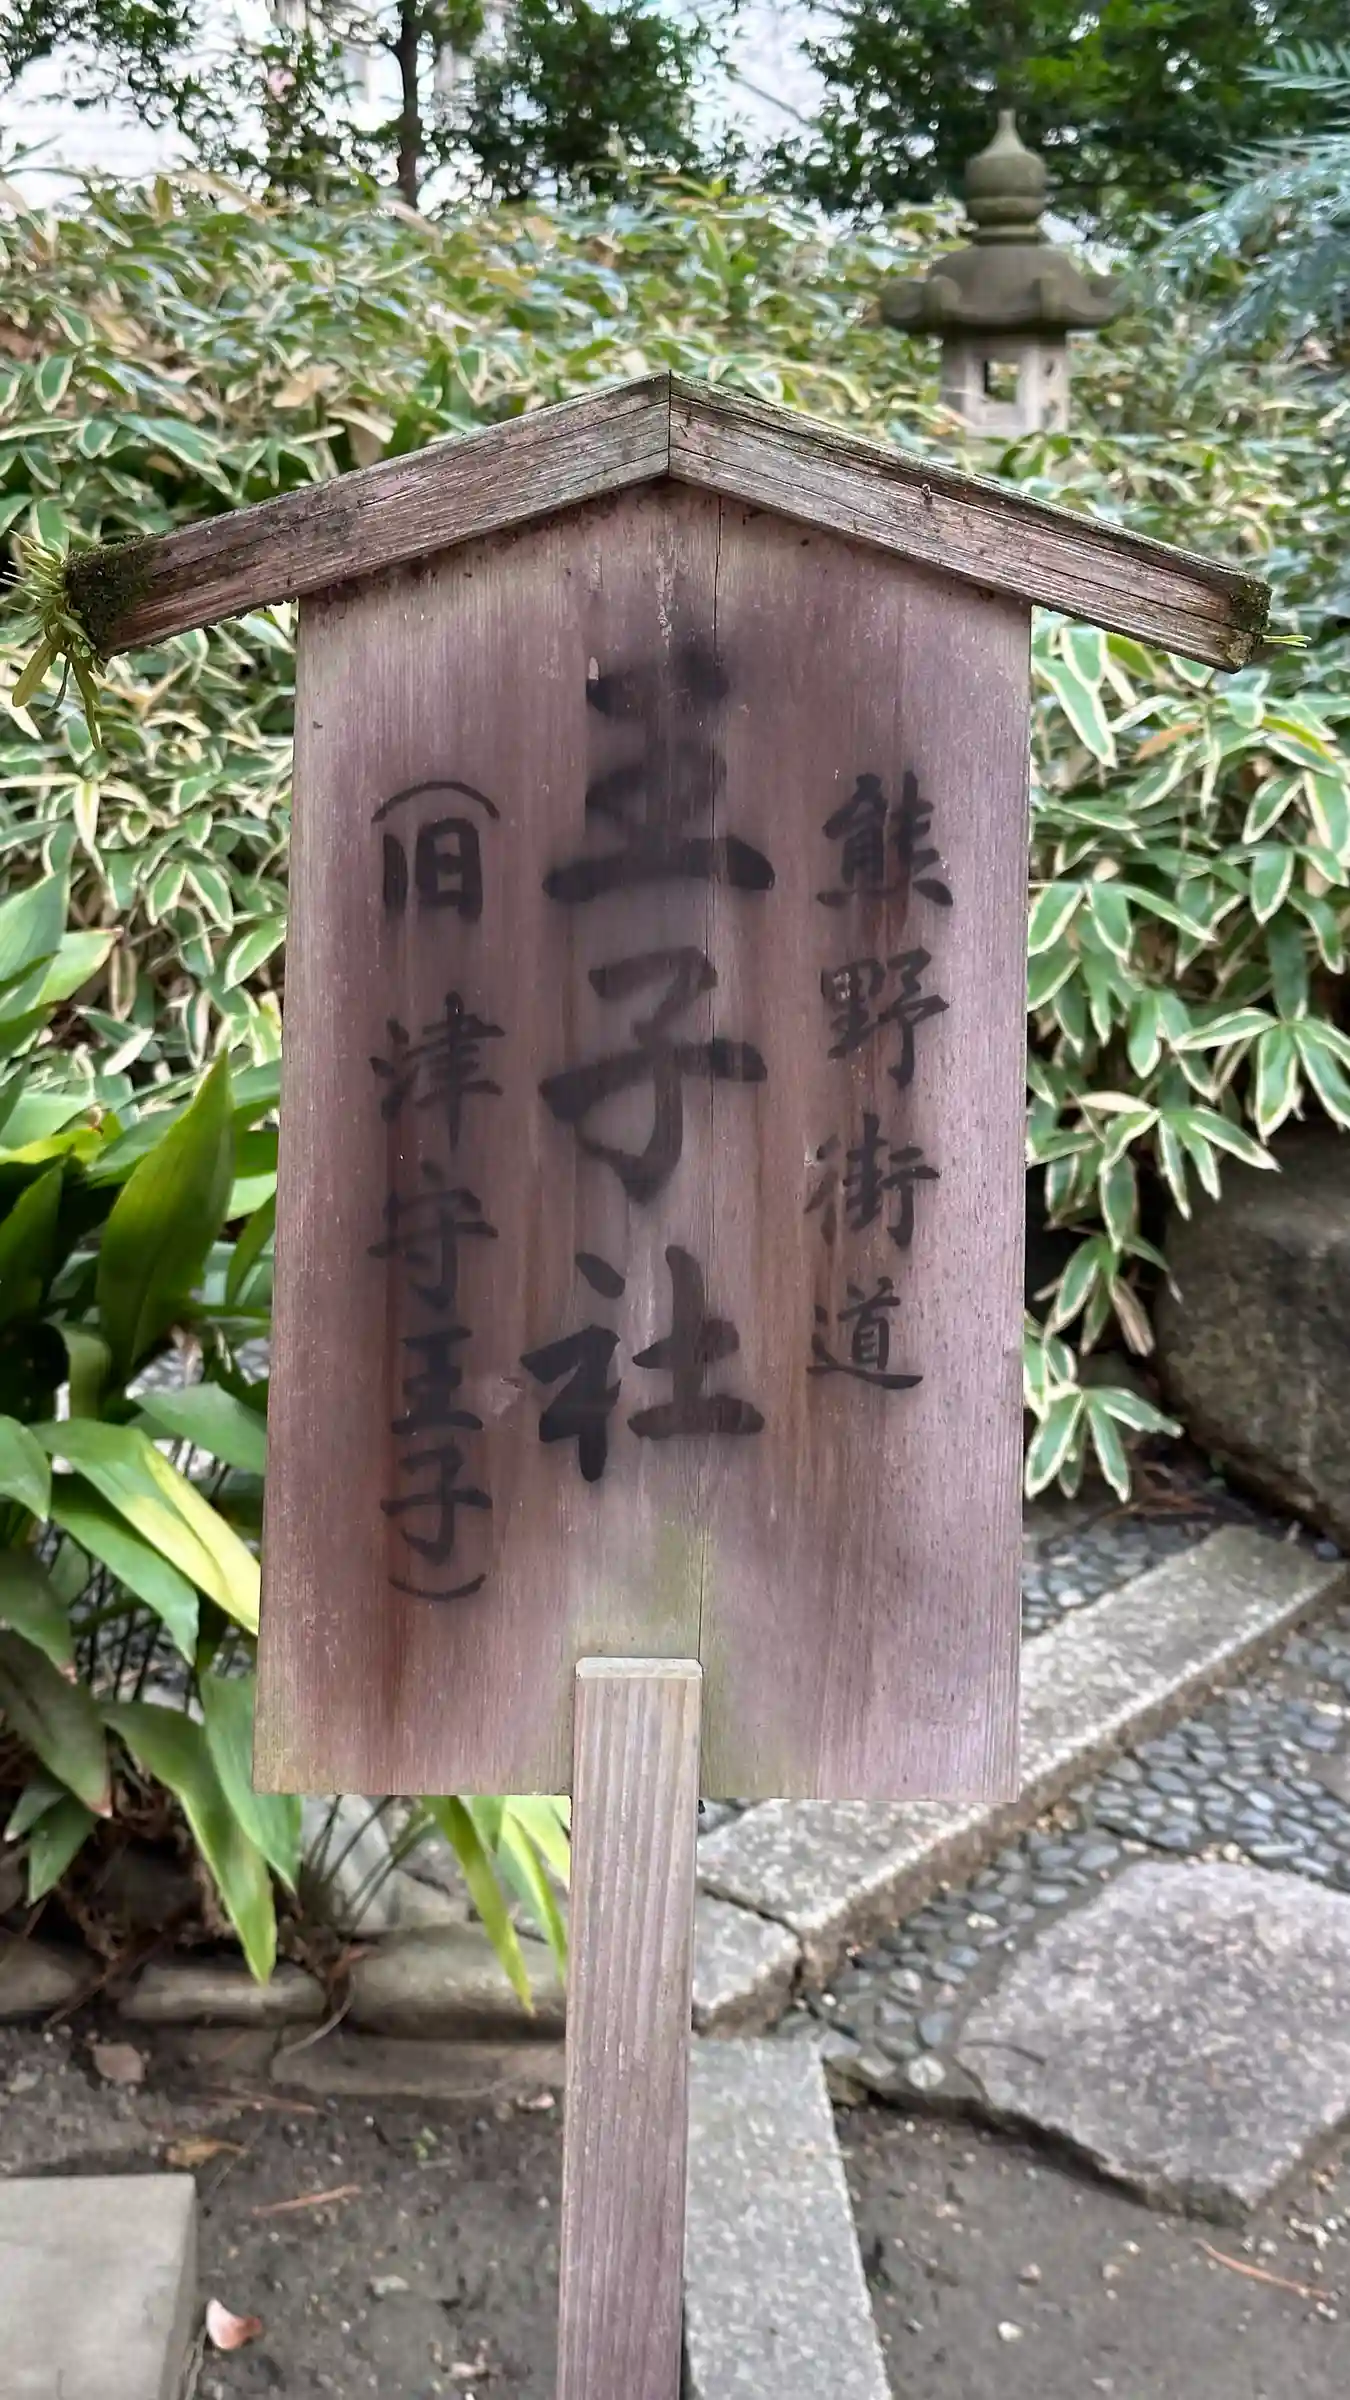 熊野街道
王子社
（旧津守王子）